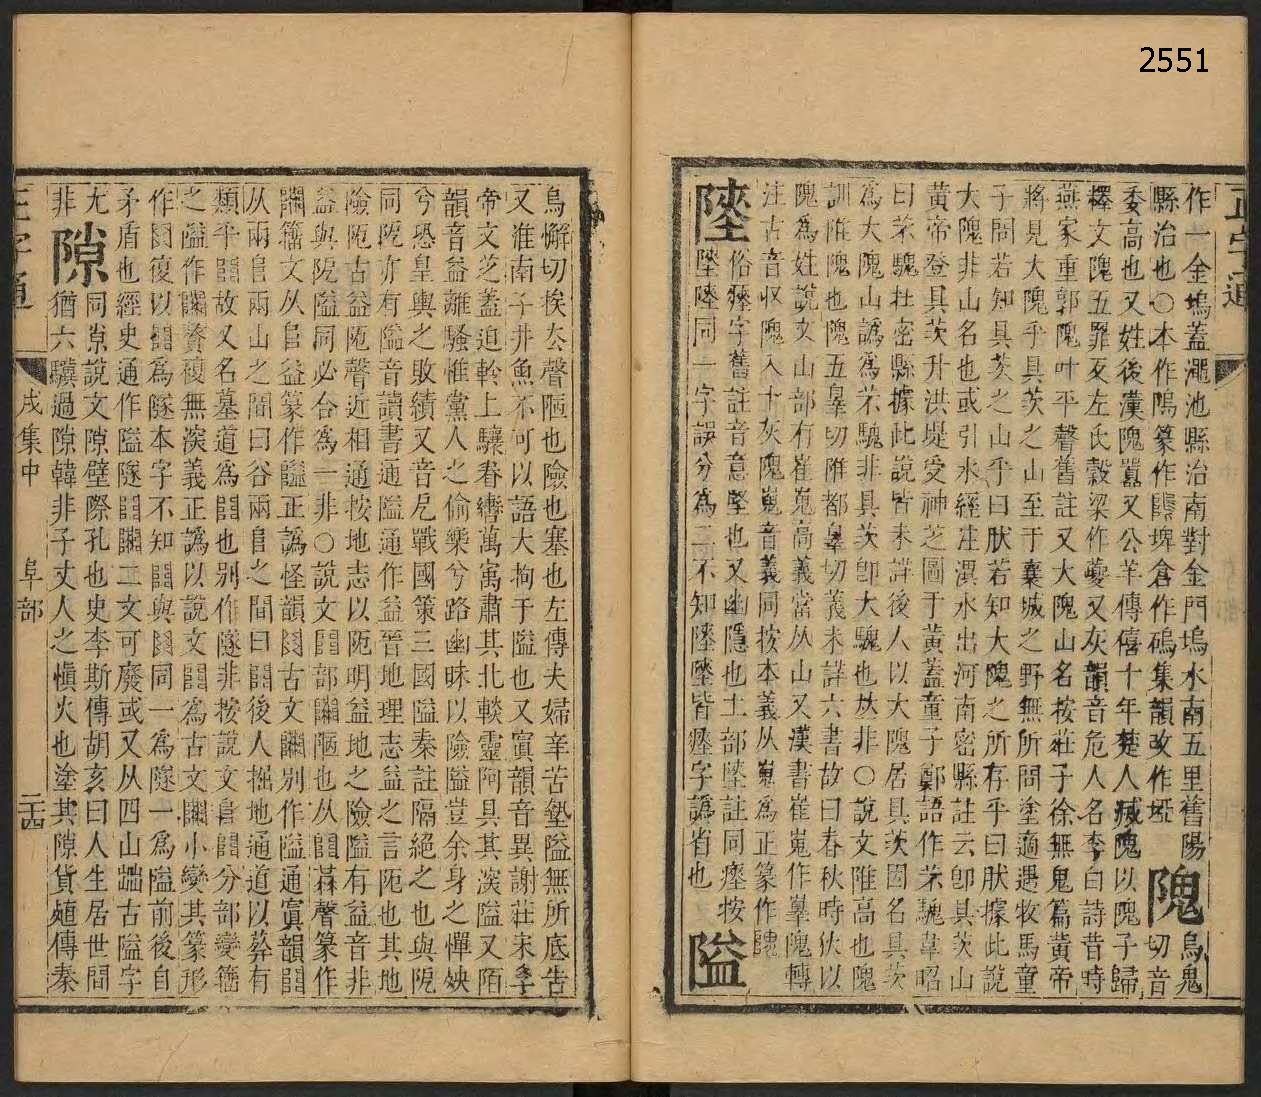 2551
正字通
作一金塢蓋澠池縣治南對金門塢水南五里舊陽
縣治也〇本作隖篆作埤倉作碼集韻改作埡 隗烏鬼切音
委高也又姓後漢隗囂又公羊傳僖十年楚人滅隗以隗子歸
釋文隗五罪反左氏穀梁作夔又灰韻音危人名李白詩昔時
燕家重郭隗叶平聲舊註又大隗山名按莊子徐無鬼篇黃帝
將見大隗乎具茨之山至于襄城之野無所問塗適遇牧馬童
子問若知具茨之山乎曰肰若知大隗之所存乎曰肰據此說
大隗非山名也或引水經注溟水出河南密縣註云卽具茨山
黃帝登具茨升洪堤受神芝圖于黃蓋童子鄭語作茮騩韋昭
曰茮騩在密縣據此說皆未詳後人以大隗居具茨因名具茨
爲大隗山譌爲茮騩非具茨卽大騩也𠀤非〇說文陮高也隗
訓陮隗也隗五辠切陮都辠切義未詳六書故曰春秋時狄以
隗爲姓說文山部有崔嵬高義當从山又漢書崔嵬作辠隗轉
注古音収隗入十灰隗嵬音義同按本義从嵬爲正篆作
䧜俗瘞字舊註音意堅也又幽隱也土部䧜註同瘞按
䧜䧜同一字誤分爲二不知䧜䧜皆瘞字譌省也 隘
烏懈切挨去聲陋也險也塞也左傳夫婦辛苦墊隘無所底告
又淮南子井魚不可以語大拘于隘也又寘韻音異謝莊宋孝
帝文芝蓋迫軨上驤眷轡萬寓肅其北轅靈阿具其深隘又陌
韻音益離騷惟黨人之偷樂兮路幽昧以險隘豈余身之憚姎
兮恐皇輿之敗績又音戹戰國策三國隘秦註隔絕之也與阨
同阨亦有隘音讀書通隘通作益晉地理志益之言阨也其地
險阨古益阨聲近相通按地志以阨明益地之險隘有益音非
益與阨隘同必合爲一非〇說文部陋也从聲篆作
籒文从𨸏益篆作正譌怪韻古文別作隘通寘韻
从兩𨸏兩山之間曰谷兩𨸏之間曰後人掘地通道以葬有
類乎故又名墓道爲也別作隧非按說文𨸏分部變籒
之隘作贅複無深義正譌以說文爲古文小變其篆形
作復以爲隧本字不知與同一爲隧一爲隘前後自
矛盾也經史通作隘隧二文可廢或又从四山古隘字
尤 隙同說文隙壁際孔也史李斯傳胡亥曰人生居世間
非 猶六驥過隙韓非子丈人之愼火也塗其隙貨殖傳秦
正字通 戌集中 阜部 二十四